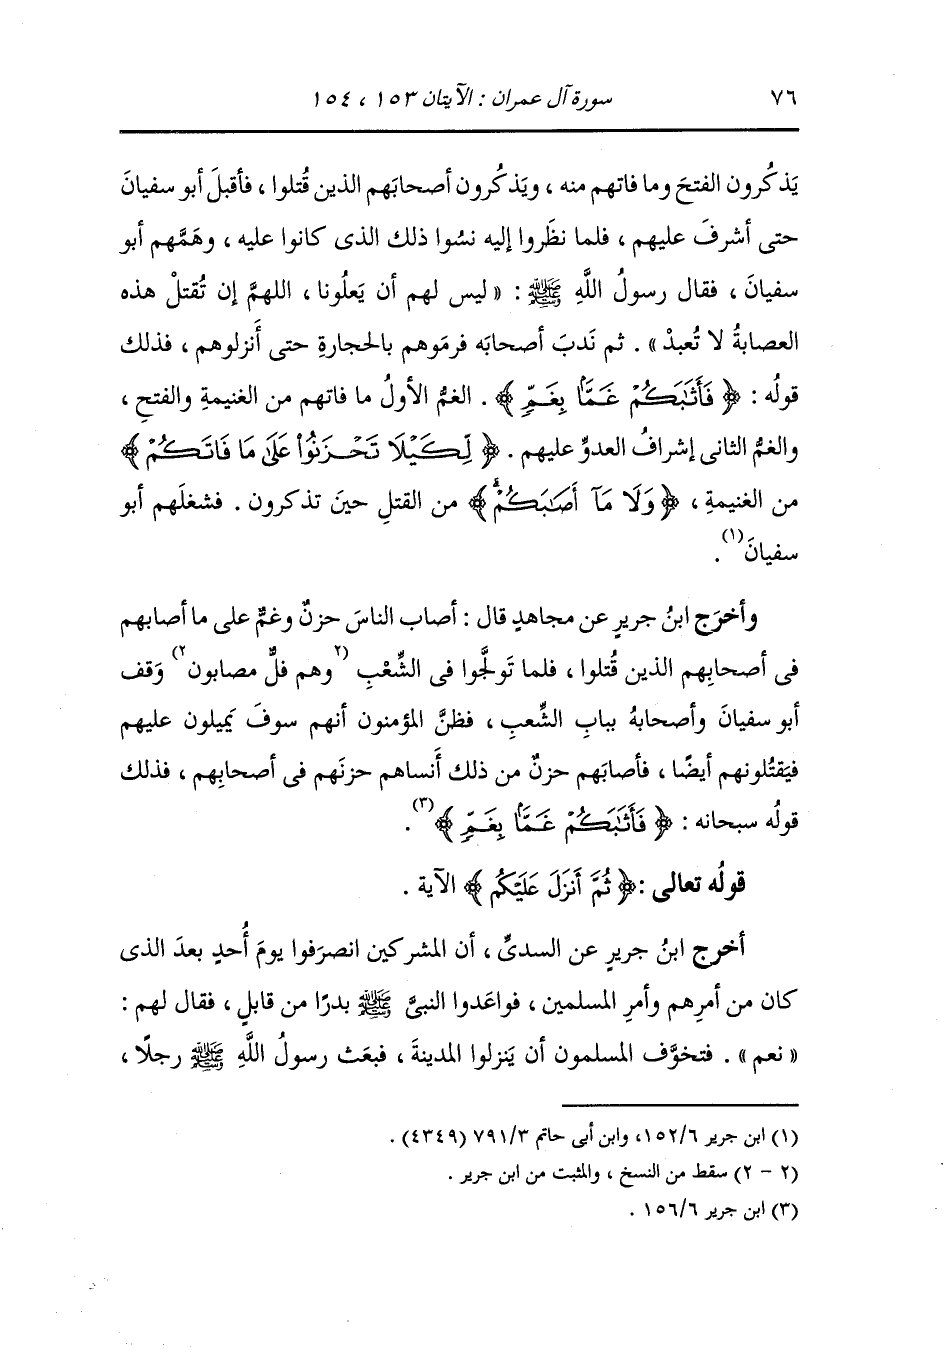 ٧٦ سورة آل عمران : الآيتان ١٥٣ ، ١٥٤
يَذكُرون الفتحَ وما فاتهم منه ، ويَذكُرون أصحابَهم الذين قُتلوا ، فأقبلَ أبو سفيانَ
حتى أشرفَ عليهم ، فلما نظَروا إليه نسُوا ذلك الذى كانوا عليه ، وهَمَّهم أبو
سفيانَ ، فقال رسولُ اللَّهِ ﷺ : « ليس لهم أن يَعلُونا ، اللهمَّ إن تُقتلْ هذه
العصابةُ لا تُعبدْ » . ثم نَدبَ أصحابَه فرمَوهم بالحجارةِ حتى أَنزلوهم ، فذلك
قولُه : ﴿ فَأَثَٰبَكُمْ غَمًّۢا بِغَمٍّ ﴾ . الغمُّ الأولُ ما فاتهم من الغنيمةِ والفتحِ ،
والغمُّ الثانى إشرافُ العدوِّ عليهم . ﴿ لِّكَيْلَا تَحْزَنُوا۟ عَلَىٰ مَا فَاتَكُمْ ﴾
من الغنيمةِ ، ﴿ وَلَا مَآ أَصَٰبَكُمْ ۗ ﴾ من القتلِ حينَ تذكرون . فشغلَهم أبو
سفيانَ(١).
وأخرَج ابنُ جريرٍ عن مجاهدٍ قال : أصاب الناسَ حزنٌ وغمٌّ على ما أصابهم
فى أصحابِهم الذين قُتلوا ، فلما تَولَّجوا فى الشِّعْبِ (٢وهم فلٌّ مصابون٢) وَقف
أبو سفيانَ وأصحابهُ ببابِ الشِّعبِ ، فظنَّ المؤمنون أنهم سوفَ يَميلون عليهم
فيَقتُلونهم أيضًا ، فأصابَهم حزنٌ من ذلك أَنساهم حزنَهم فى أصحابِهم ، فذلك
قولُه سبحانه : ﴿ فَأَثَٰبَكُمْ غَمًّۢا بِغَمٍّ ﴾(٣).
قولُه تعالى :﴿ ثُمَّ أَنزَلَ عَلَيْكُم ﴾ الآية .
أخرج ابنُ جريرٍ عن السدىِّ ، أن المشركين انصرَفوا يومَ أُحدٍ بعدَ الذى
كان من أمرِهم وأمرِ المسلمين ، فواعَدوا النبىَّ ﷺ بدرًا من قابلٍ ، فقال لهم :
« نعم » . فتخوَّف المسلمون أن يَنزلوا المدينةَ ، فبعَث رسولُ اللَّهِ ﷺ رجلًا ،
(١) ابن جرير ١٥٢/٦، وابن أبى حاتم ٧٩١/٣ (٤٣٤٩) .
(٢ - ٢) سقط من النسخ ، والمثبت من ابن جرير .
(٣) ابن جرير ١٥٦/٦ .